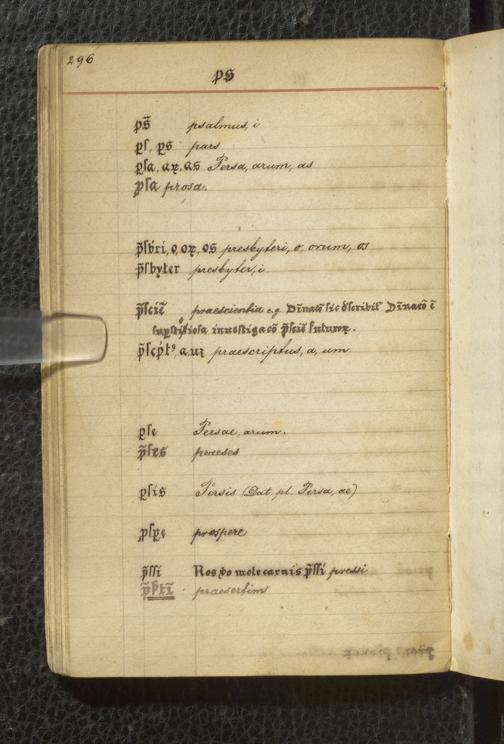 296
ps
ps̄ psalmus, i
ꝑſ, ꝑs pars
ꝑſa, aꝝ, as Persa, arum, as
ꝓſa prosa.
p̄ſbri, o, oꝝ, os presbyteri, o, orum, os
p̄ſbyter presbyter, i
p̄ſciē praescientia e.g. Dīnatō ſic
inueſtigacō p̄ſciē futuroꝝ.
p̄ſcṕtꝰ, a, uꝫ praescriptus, a, um
ꝑſe Persae, arum.
p̄ſes praeses
ꝑſis Persis (Dat. pl. Persa, ae)
ꝓſꝑe prospere
p̄ſſi Nos do mole carnis p̄ſſi pressi
praesertim